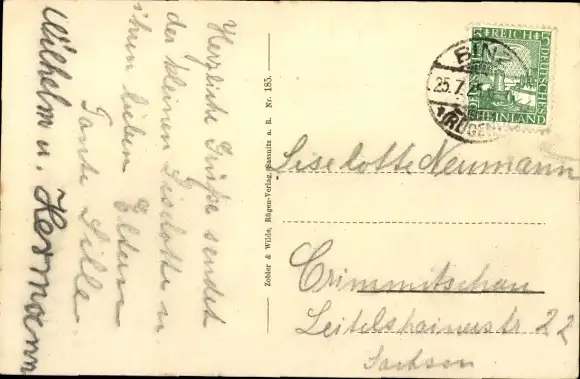 Herzliche Grüße sendet
der kleinen Liselotte u.
ihren lieben Eltern
Tante Lilli.
Wilhelm u. Hermann
Zobler & Wilde, Rügen-Verlag, Sassnitz a. R. Nr. 185.
DEUTSCHES REICH
RHEINLAND
BINZ
25.7.25
(RÜGEN)
Liselotte Neumann
Crimmitschau
Leitelshainerstr 22
Sachsen